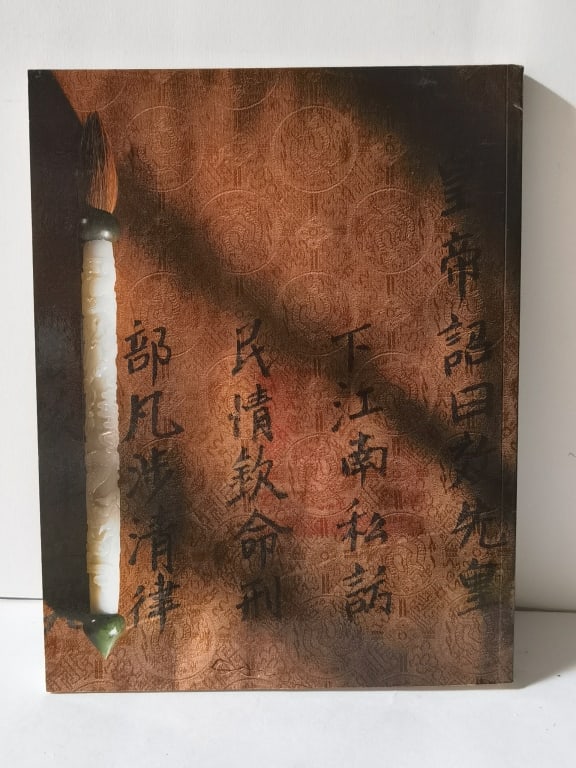 皇帝詔曰效先皇
下江南私訪
民情欽命刑
部凡涉清律